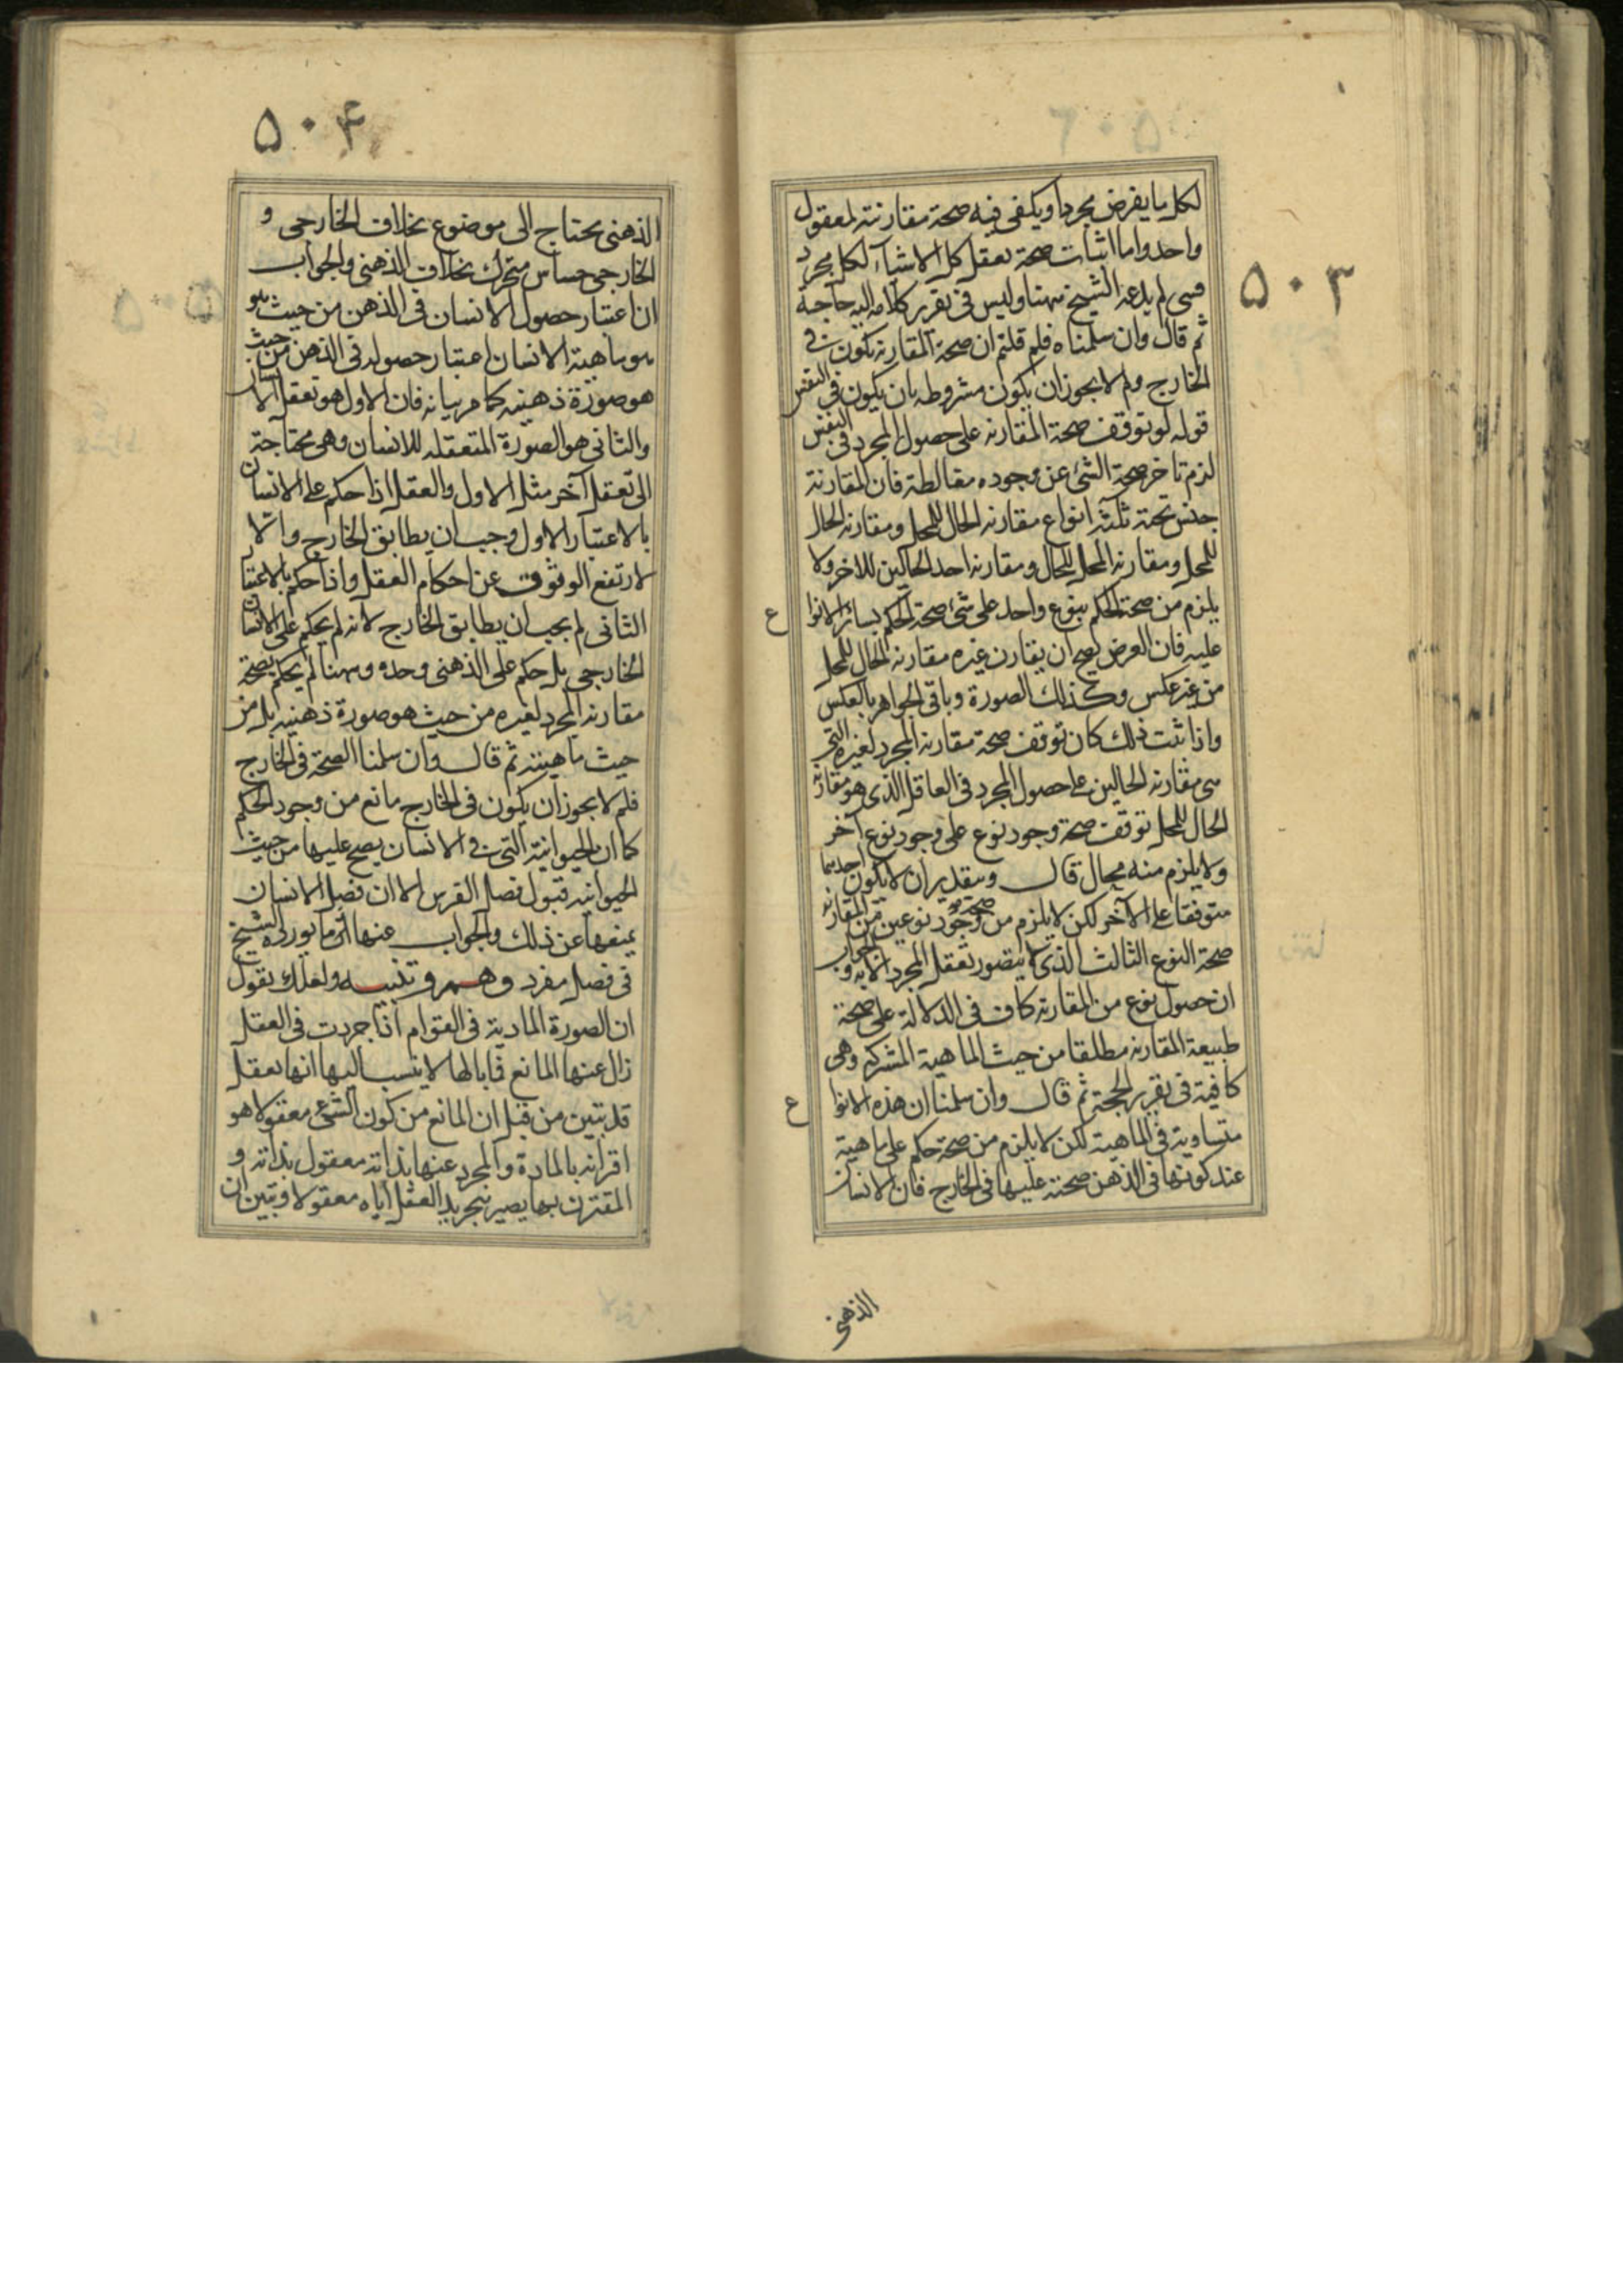 ٥٠٣
لكل ما يفرض مجردا ويكفى فيه صحة مقارنته لمعقول
واحد واما اثبات صحة تعقل كل الاشياء لكل مجرد
فشى لم يدعه الشيخ ههنا وليس فى تقرير كلامه اليه حاجة
ثم قال وان سلمناه فلم قلتم ان صحة المقارنة تكون فى
الخارج ولم لا يجوز ان يكون مشروطه بان يكون فى النفس
قوله لو توقف صحة المقارنه على حصول المجرد فى النفس
لزم تاخر صحة الشئ عن وجوده مغالطة فان المقارنة
جنس تحته ثلثة انواع مقارنه الحال للمحل ومقارنه الحال
للمحل ومقارنه المحل للحال ومقارنه احد الحالين للاخر ولا
يلزم من صحة الحكم بنوع واحد على شئ صحة الحكم بسائر الانوا
ع
عليه فان العرض يصح ان يقارن غيره مقارنه الحال للمحل
من غير عكس وكذلك الصورة وباقى الجواهر بالعكس
واذا ثبت ذلك كان توقف صحة مقارنه المجرد لغيره التى
هى مقارنه الحالين على حصول المجرد فى العاقل الذى هو مقارنه
الحال للمحل توقف صحة وجود نوع على وجود نوع آخر
ولا يلزم منه محال قال وبتقدير ان لا يكون احدهما
متوقفا على الآخر لكن لا يلزم من صحة وجود نوعين من المقارنه
صحة النوع الثالث الذى لا يتصور تعقل المجرد الا به والجواب
ان حصول نوع من المقارنه كاف فى الدلالة على صحة
طبيعة المقارنه مطلقا من حيث الماهية المشتركه وهى
كافية فى تقرير الحجة ثم قال وان سلمنا ان هذه الانوا
ع
متساوية فى الماهية لكن لا يلزم من صحة حكم على ماهية
عند كونها فى الذهن صحته عليها فى الخارج فان الانسان
الذهنى
٥٠۴
الذهنى يحتاج الى موضوع بخلاف الخارجى و
الخارجى حساس متحرك بخلاف الذهنى والجواب
ان اعتبار حصول الانسان فى الذهن من حيث هو
هو ماهية الانسان اعتبار حصوله فى الذهن من حيث
هو صورة ذهنيه كما مر بيانه فان الاول هو تعقل الانسان
والثانى هو الصورة المتعقله للانسان وهى محتاجة
الى تعقل آخر مثل الاول والعقل اذا حكم على الانسان
بالاعتبار الاول وجب ان يطابق الخارج والا
لارتفع الوثوق عن احكام العقل واذا حكم بالاعتبار
الثانى لم يجب ان يطابق الخارج لانه لم يحكم على الانسان
الخارجى بل حكم على الذهنى وحده وههنا لم يحكم بصحة
مقارنه المجرد لغيره من حيث هو صورة ذهنيه بل من
حيث ماهيته ثم قال وان سلمنا الصحة فى الخارج
فلم لا يجوز ان يكون فى الخارج مانع من وجود الحكم
كما ان الحيوانية التى فى الانسان يصح عليها من حيث
الحيوانيه قبول فصل الفرس الا ان فصل الانسان
يمنعها عن ذلك والجواب عنها اثر ما يورده الشيخ
فى فصل مفرد وهم وتنبيه ولعلك تقول
ان الصورة المادية فى القوام اذا جردت فى العقل
زال عنها المانع فما بالها لا ينسب اليها انها تعقل
قد تبين من قبل ان المانع من كون الشئ معقولا هو
اقترانه بالمادة والمجرد عنها بذاته معقول بذاته و
المقترن بها يصير بتجريد العقل اياه معقولا وتبين ان